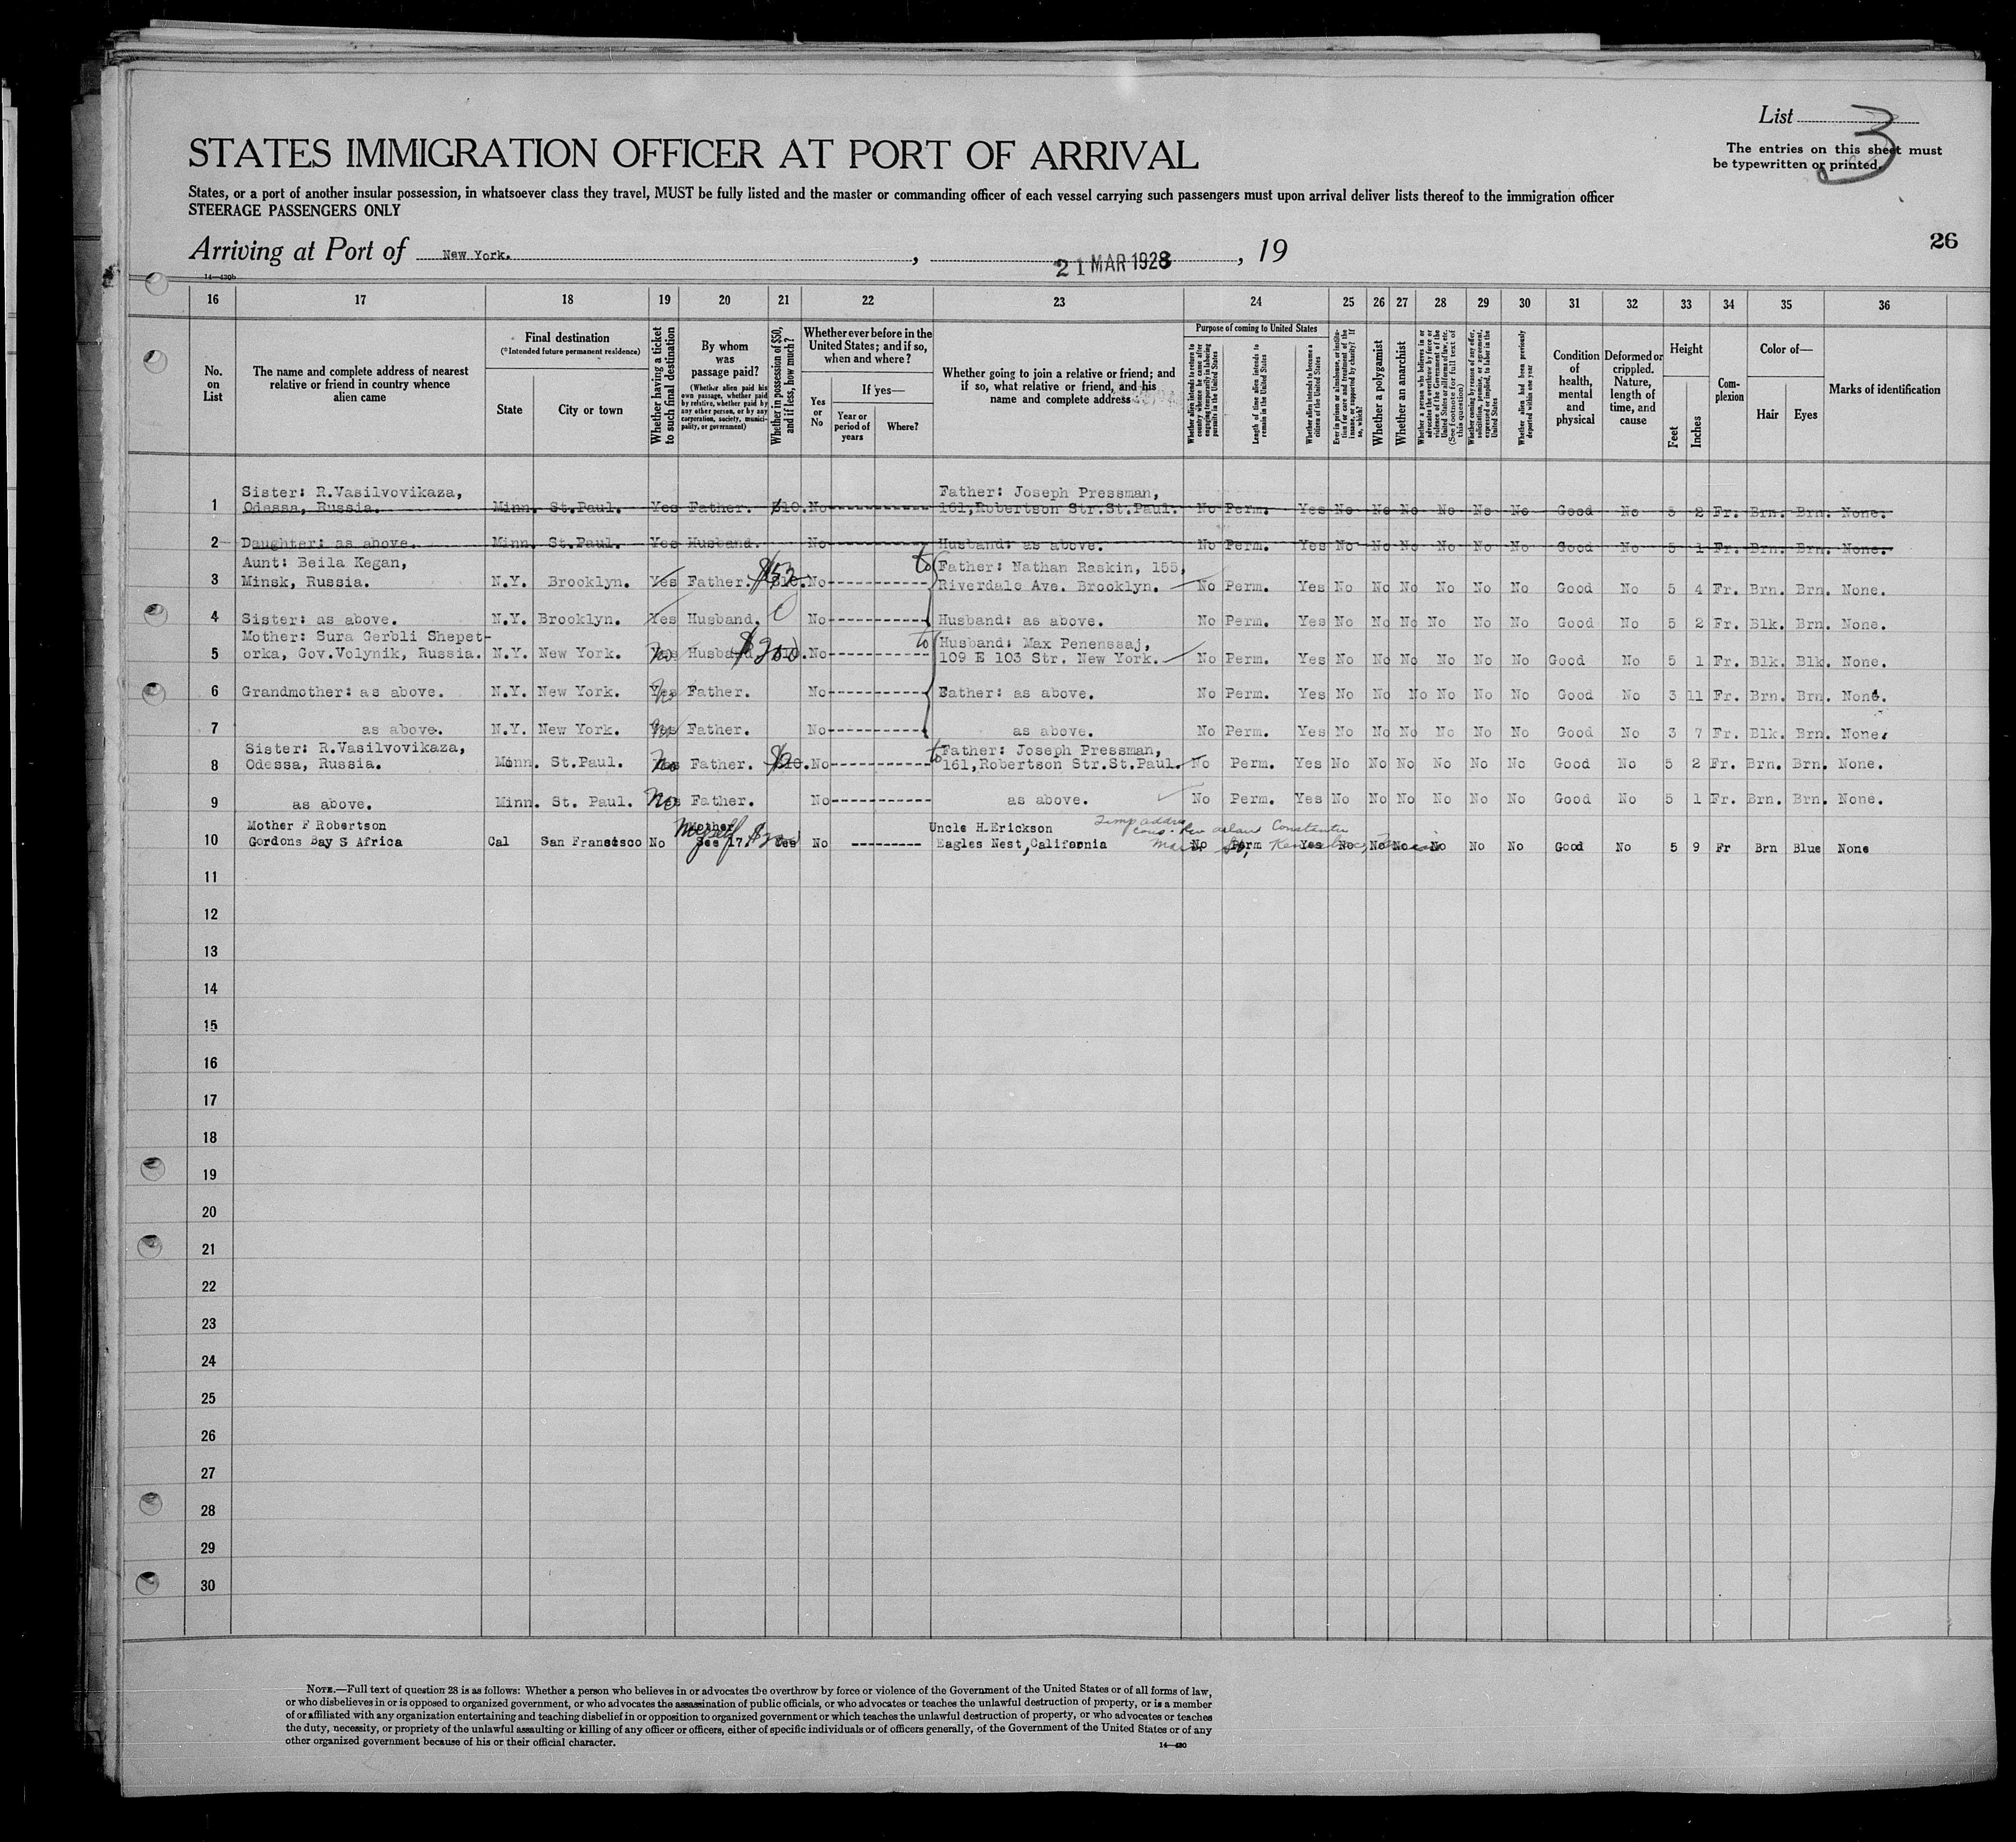 List 3
The entries on this sheet must
be typewritten or printed.
STATES IMMIGRATION OFFICER AT PORT OF ARRIVAL
States, or a port of another insular possession, in whatsoever class they travel, MUST be fully listed and the master or commanding officer of each vessel carrying such passengers must upon arrival deliver lists thereof to the immigration officer
STEERAGE PASSENGERS ONLY
26
Arriving at Port of New York. , 21 MAR 1928 , 19
14—430b
16 17 18 19 20 21 22 23 24 25 26 27 28 29 30 31 32 33 34 35 36
No. on List
The name and complete address of nearest relative or friend in country whence alien came
Final destination
(*Intended future permanent residence)
State
City or town
Whether having a ticket to such final destination
By whom was passage paid?
(Whether alien paid his own passage, whether paid by relative, whether paid by any other person, or by any corporation, society, municipality, or government)
Whether in possession of $50, and if less, how much?
Whether ever before in the United States; and if so, when and where?
Yes or No
If yes—
Year or period of years
Where?
Whether going to join a relative or friend; and if so, what relative or friend, and his name and complete address
Purpose of coming to United States
Whether alien intends to return to country whence he came after engaging temporarily in laboring pursuits in the United States
Length of time alien intends to remain in the United States
Whether alien intends to become a citizen of the United States
Ever in prison or almshouse, or institution for care and treatment of the insane, or supported by charity? If so, which?
Whether a polygamist
Whether an anarchist
Whether a person who believes in or advocates the overthrow by force or violence of the Government of the United States or all forms of law, etc. (See footnote for full text of this question)
Whether coming by reason of any offer, solicitation, promise, or agreement, expressed or implied, to labor in the United States
Whether alien had been previously deported within one year
Condition of health, mental and physical
Deformed or crippled. Nature, length of time, and cause
Height
Feet
Inches
Complexion
Color of—
Hair
Eyes
Marks of identification
1 Sister: R.Vasilvovikaza, Odessa, Russia. Minn. St.Paul. Yes Father. $10. No Father: Joseph Pressman, 161,Robertson Str.St.Paul. No Perm. Yes No No No No No No Good No 5 2 Fr. Brn. Brn. None.
2 Daughter: as above. Minn. St.Paul. Yes Husband. No Husband: as above. No Perm. Yes No No No No No No Good No 5 1 Fr. Brn. Brn. None.
3 Aunt: Beila Kegan, Minsk, Russia. N.Y. Brooklyn. Yes Father. $10. $53 No to Father: Nathan Raskin, 155, Riverdale Ave. Brooklyn. No Perm. Yes No No No No No No Good No 5 4 Fr. Brn. Brn. None.
4 Sister: as above. N.Y. Brooklyn. Yes Husband. 0 No Husband: as above. No Perm. Yes No No No No No No Good No 5 2 Fr. Blk. Brn. None.
5 Mother: Sura Gerbli Shepetorka, Gov.Volynik, Russia. N.Y. New York. Yes No Husband. $10. No to Husband: Max Penenssaj, 109 E 103 Str. New York. No Perm. Yes No No No No No No Good No 5 1 Fr. Blk. Blk. None.
6 Grandmother: as above. N.Y. New York. Yes No Father. No Father: as above. No Perm. Yes No No No No No No Good No 3 11 Fr. Brn. Brn. None.
7 as above. N.Y. New York. Yes No Father. No as above. No Perm. Yes No No No No No No Good No 3 7 Fr. Blk. Brn. None.
8 Sister: R.Vasilvovikaza, Odessa, Russia. Minn. St.Paul. Yes No Father. $10. No to Father: Joseph Pressman, 161,Robertson Str.St.Paul. No Perm. Yes No No No No No No Good No 5 2 Fr. Brn. Brn. None.
9 as above. Minn. St. Paul. Yes No Father. No as above. No Perm. Yes No No No No No No Good No 5 1 Fr. Brn. Brn. None.
10 Mother F Robertson Gordons Bay S Africa Cal San Fransisco No Mother See 17 Myself Yes No Uncle H.Erickson Eagles Nest,California No Perm Yes No No No No No No Good No 5 9 Fr Brn Blue None
11
12
13
14
15
16
17
18
19
20
21
22
23
24
25
26
27
28
29
30
NOTE.—Full text of question 28 is as follows: Whether a person who believes in or advocates the overthrow by force or violence of the Government of the United States or of all forms of law,
or who disbelieves in or is opposed to organized government, or who advocates the assassination of public officials, or who advocates or teaches the unlawful destruction of property, or is a member
of or affiliated with any organization entertaining and teaching disbelief in or opposition to organized government or which teaches the unlawful destruction of property, or who advocates or teaches
the duty, necessity, or propriety of the unlawful assaulting or killing of any officer or officers, either of specific individuals or of officers generally, of the Government of the United States or of any
other organized government because of his or their official character.
14—430